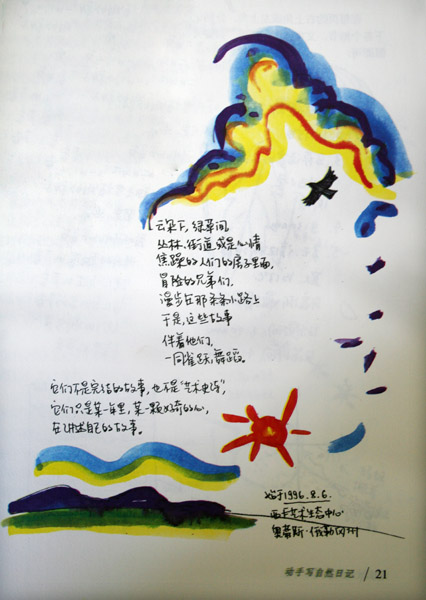 云朵下,绿草间,
丛林、街道,或是心情
焦躁的人们的房子里面,
冒险的兄弟们,
漫步在那条条小路上
于是,这些故事
伴着他们,
一同雀跃,舞蹈。
它们不是完结的故事,也不是“艺术史诗”,
它们只是某一年里,某一颗好奇的心,
在讲述自己的故事。
始于1996.8.6.
西卡艺术生态中心
奥蒂斯·俄勒冈州
动手写自然日记 / 21